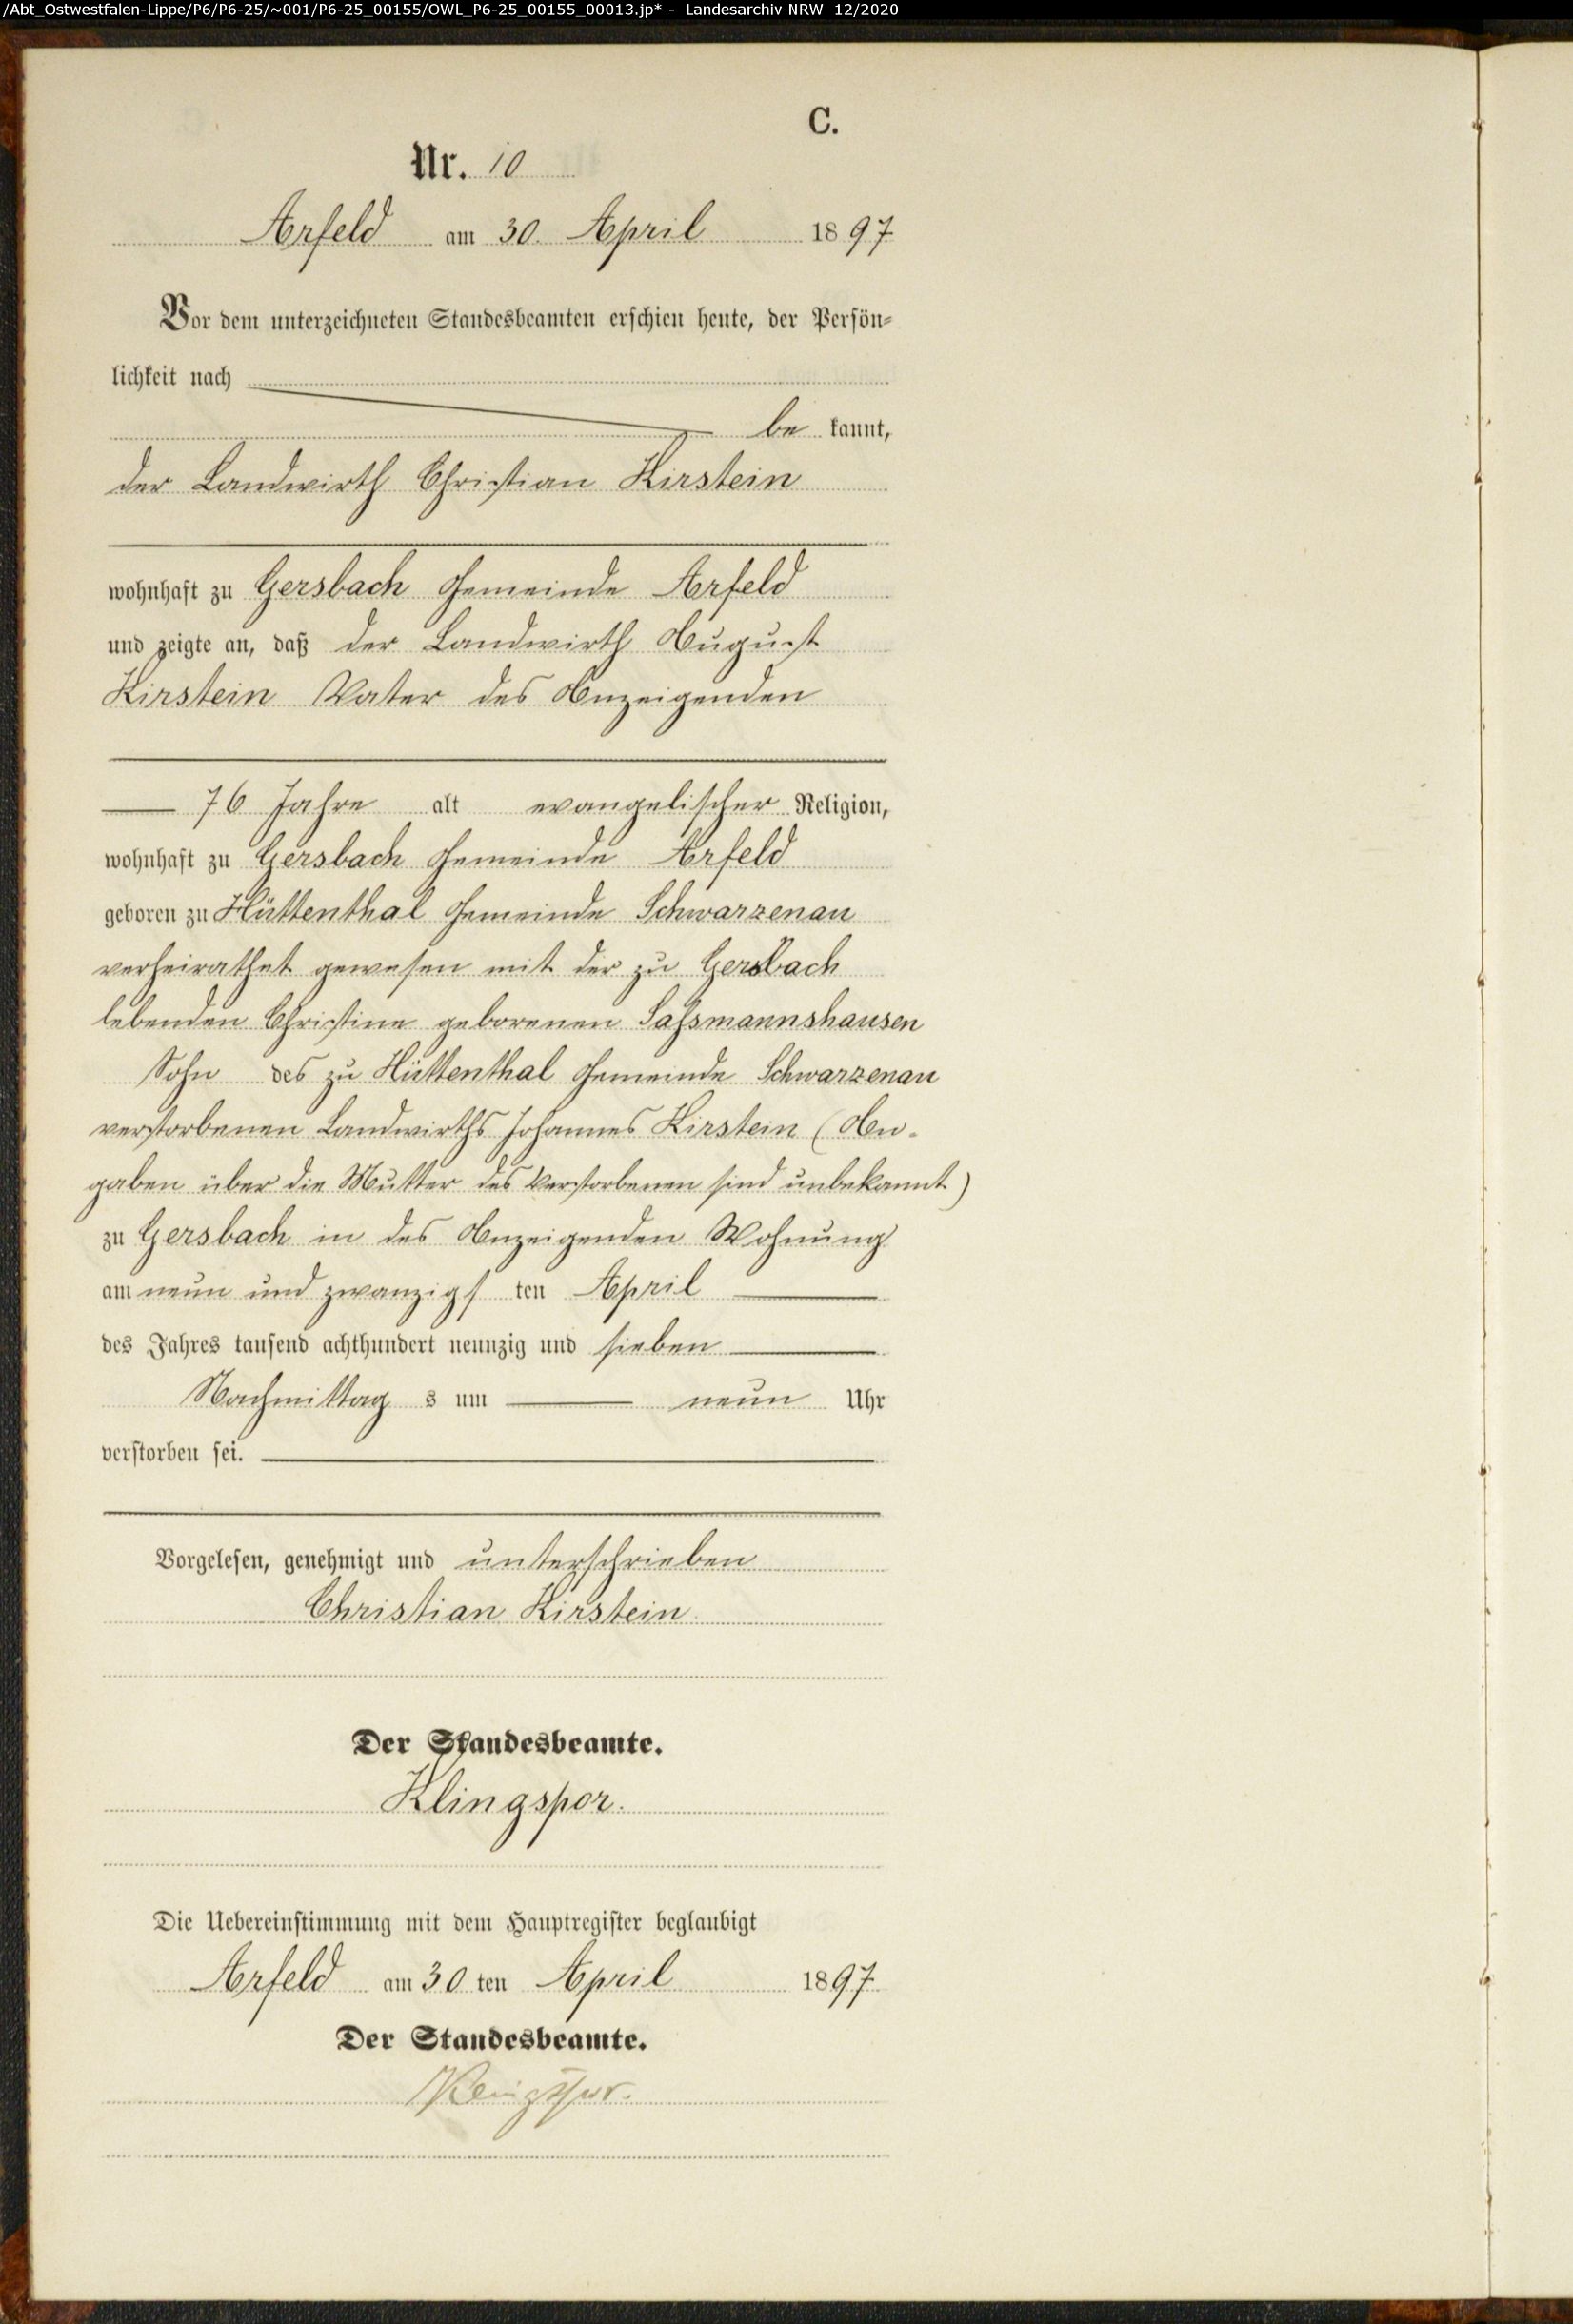 /Abt_Ostwestfalen-Lippe/P6/P6-25/~001/P6-25_00155/OWL_P6-25_00155_00013.jp* - Landesarchiv NRW 12/2020
C.
Nr. 10
Arfeld am 30. April 1897
Vor dem unterzeichneten Standesbeamten erschien heute, der Persön-
lichkeit nach
be kannt,
der Landwirth Christian Kirstein
wohnhaft zu Gersbach Gemeinde Arfeld
und zeigte an, daß der Landwirth August
Kirstein Vater des Anzeigenden
76 Jahre alt evangelischer Religion,
wohnhaft zu Gersbach Gemeinde Arfeld
geboren zu Hüttenthal Gemeinde Schwarzenau
verheirathet gewesen mit der zu Gersbach
lebenden Christine geborenen Saßmannshausen
Sohn des zu Hüttenthal Gemeinde Schwarzenau
verstorbenen Landwirths Johannes Kirstein (An-
gaben über die Mutter des Verstorbenen sind unbekannt)
zu Gersbach in des Anzeigenden Wohnung
am neun und zwanzigs ten April
des Jahres tausend achthundert neunzig und sieben
Nachmittag s um neun Uhr
verstorben sei.
Vorgelesen, genehmigt und unterschrieben
Christian Kirstein
Der Standesbeamte.
Klingspor.
Die Uebereinstimmung mit dem Hauptregister beglaubigt
Arfeld am 30 ten April 1897
Der Standesbeamte.
Klingspor.